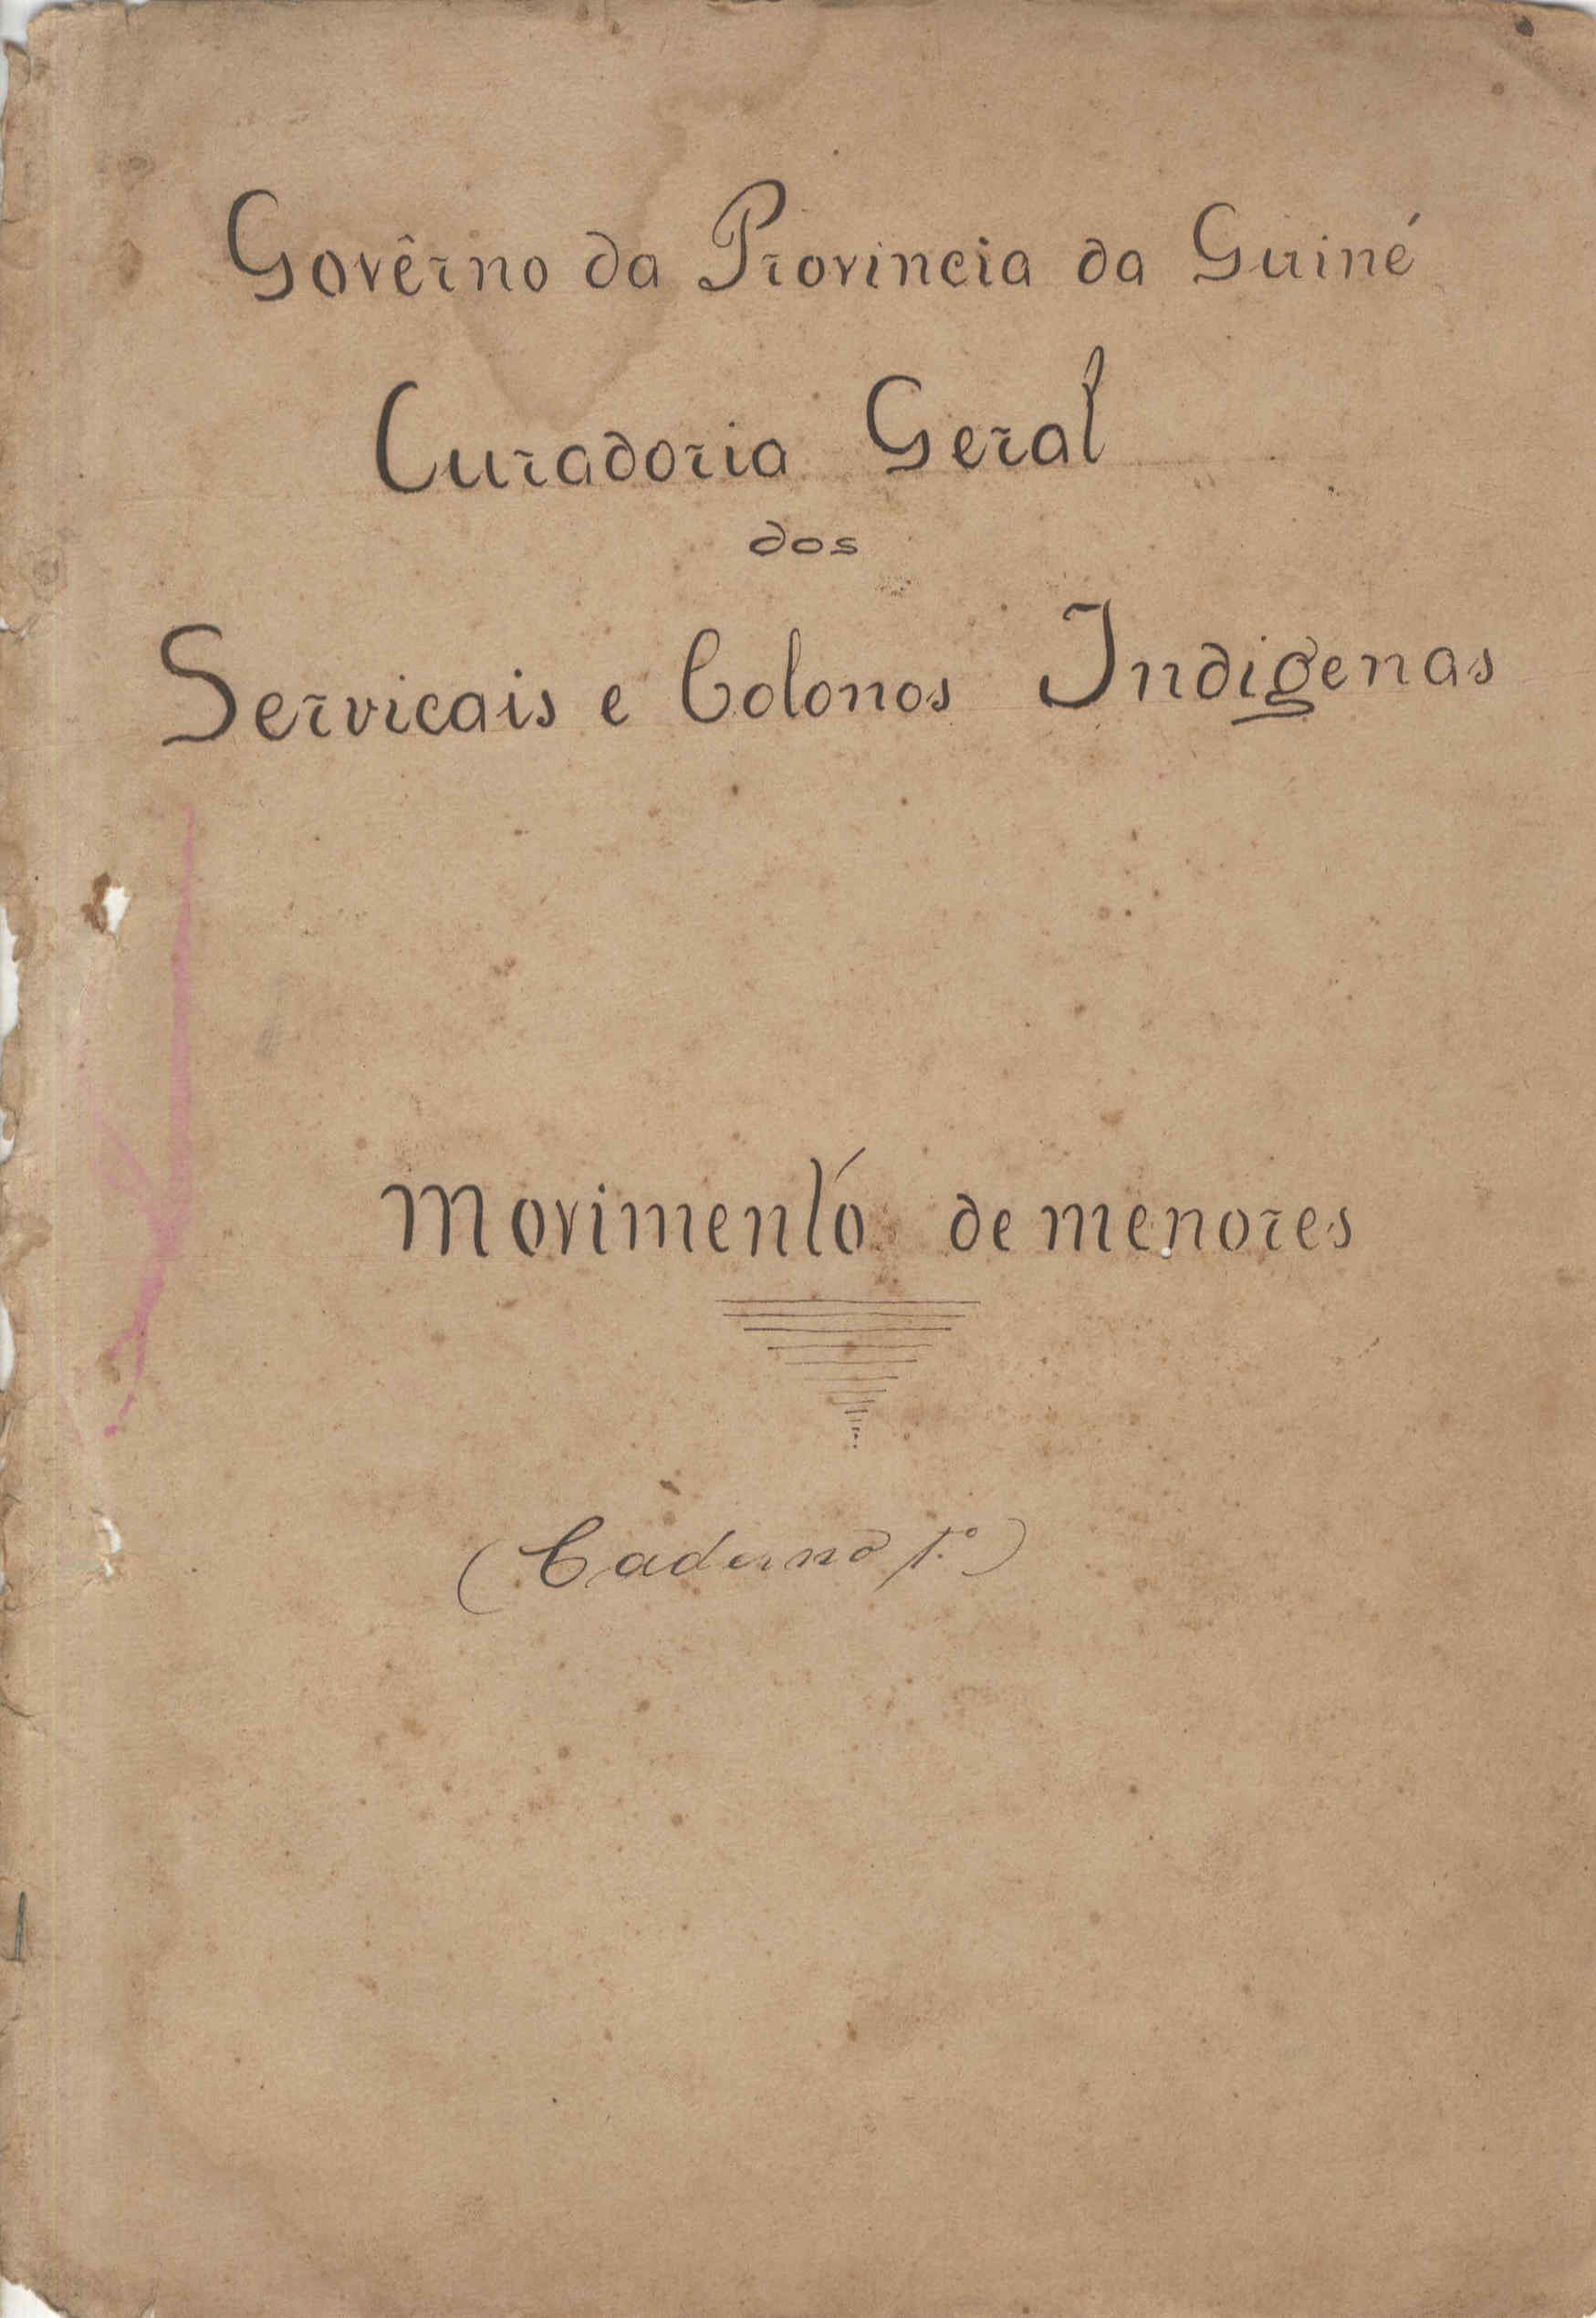 Govêrno da Provincia da Guiné
Curadoria Geral
dos
Servicais e Colonos Indigenas
Movimento de menores
(Caderno 1.º)